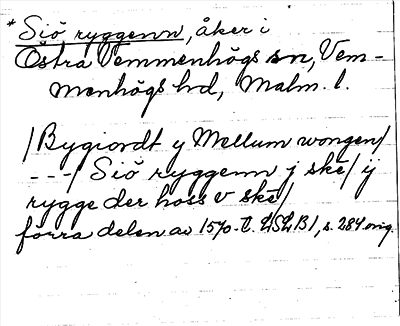 * Siö ryggenn, åker i
Östra Vemmenhögs sn, Vem-
menhögs hd, Malm. l.
/Bygiordt y Mellum wongen/
---/ Siö ryggenn j ske/ ij
rygge der hoss v ske/
förra delen av 1570-t. LSLB1, s. 284 orig.